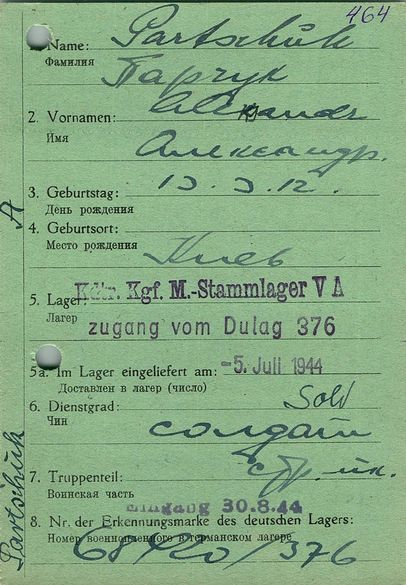 464
1. Name: Partschuk
Фамилия
Парчук
2. Vornamen: Alexander
Имя
Александр.
3. Geburtstag: 13.3.12.
День рождения
4. Geburtsort:
Место рождения
Киев
5. Lager: Kdtr. Kgf. M.-Stammlager V A
Лагер
zugang vom Dulag 376
5a. Im Lager eingeliefert am: -5. Juli 1944
Доставлен в лагер (число)
6. Dienstgrad: Sold
Чин
солдат
7. Truppenteil:
Воинская часть
Eingang 30.8.44
8. Nr. der Erkennungsmarke des deutschen Lagers:
Номер военнопленного в германском лагере
68420/376
A
Partschuk